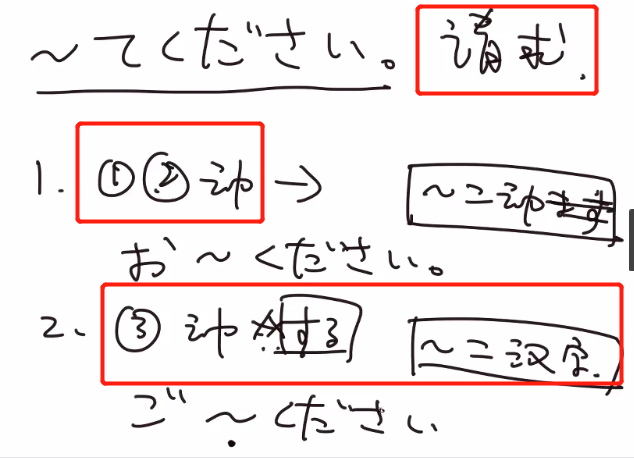 ～てください。 请求.
1. ①② 动 → ～=动ます
お～ください。
2. ③ 动 ××する ～=汉字.
ご～ください